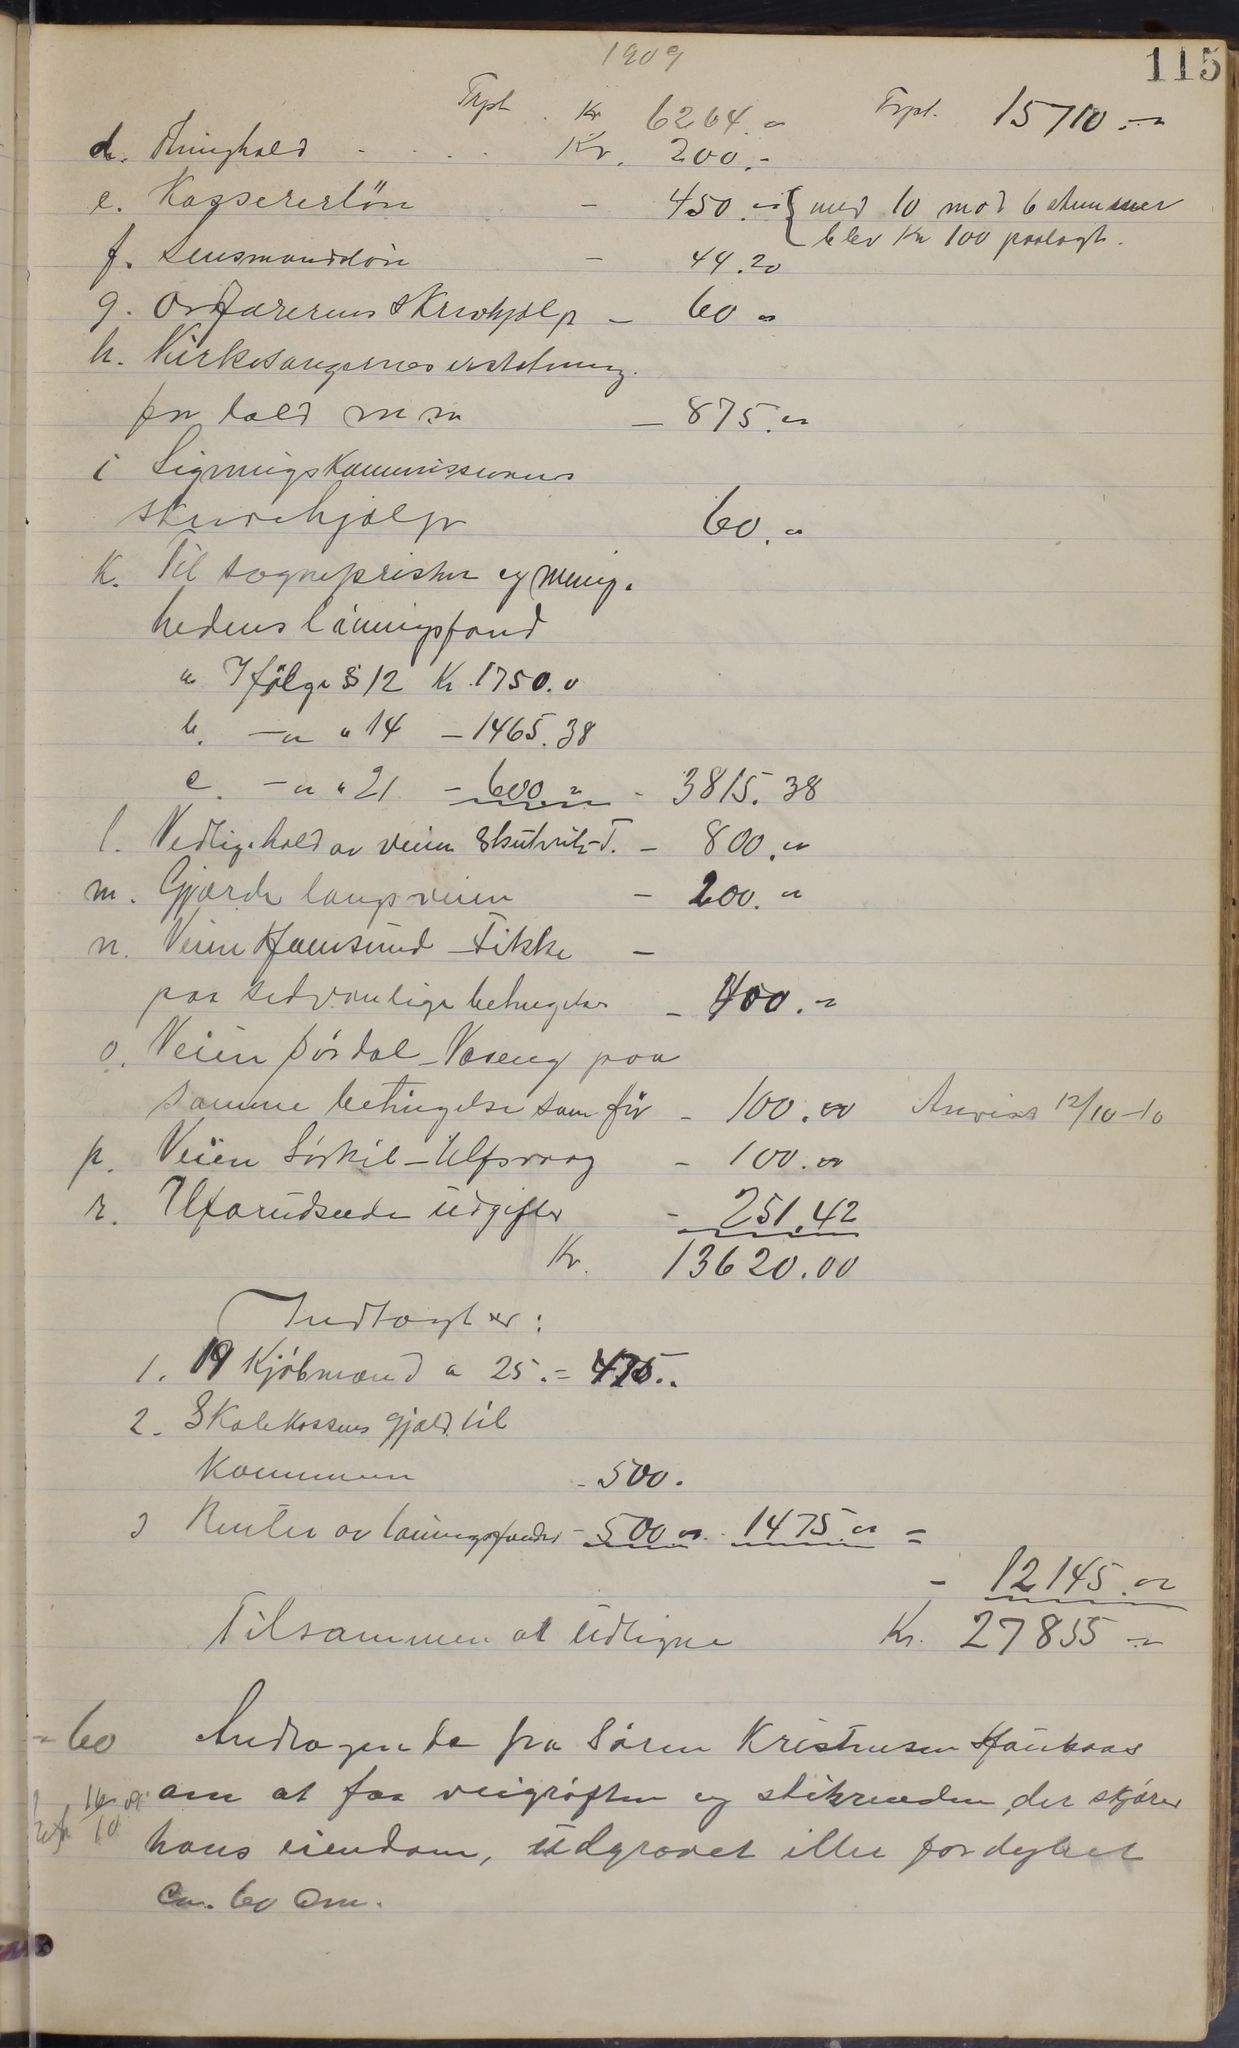 1909
115
Trpt. Kr 6264.„ Trpt. 15710.„
d. Thinghold . . . . Kr. 200.-
e. Kassererløn - 450.„ { med 10 mod 6 stemmer
blev Kr 100 paalagt.
f. Lensmandsløn - 44.20
g. Ordførerens skrivhjælp - 60 „
h. Kirkesangernes erstatning
for tabt m m - 875.„
i Ligningskommissionens
skrivehjælp 60.„
k. Til sognepresten og menig-
hedens lønningsfond
a Ifølge § 12 Kr. 1750.0
b. -„ „ 14 - 1465.38
c. -„ „ 21 - 600 „ - 3815.38
l. Vedligehold av veien Skutvik-T. - 800.„
m. Gjærde langs veien - 200.„
n. Veien Hamsund - Fikke -
paa sedvanlige betingelser - 400.„
o. Veien Sørdal - Naseng paa
samme betingelse som før - 100.00 Anvist 12/10-10
p. Veien Sørkil - Ulfsvaag - 100.00
r. Uforudseede udgifter - 251.42
Kr. 13620.00
Indtægter:
1. 19 Kjøbmænd a 25.= 475..
2. Skolekassens gjæld til
Kommunen - 500.
3 Renter av lønningsfondet - 500 „ - 1475.„ =
- 12145.„
Tilsammen at udligne Kr. 27855 -„
- 60 Andragende fra Søren Kristensen Haukaas
om at faa veigrøften og stikrenden, der skjærer
hans eiendom, udgravet eller fordybet
ca. 60 cm.